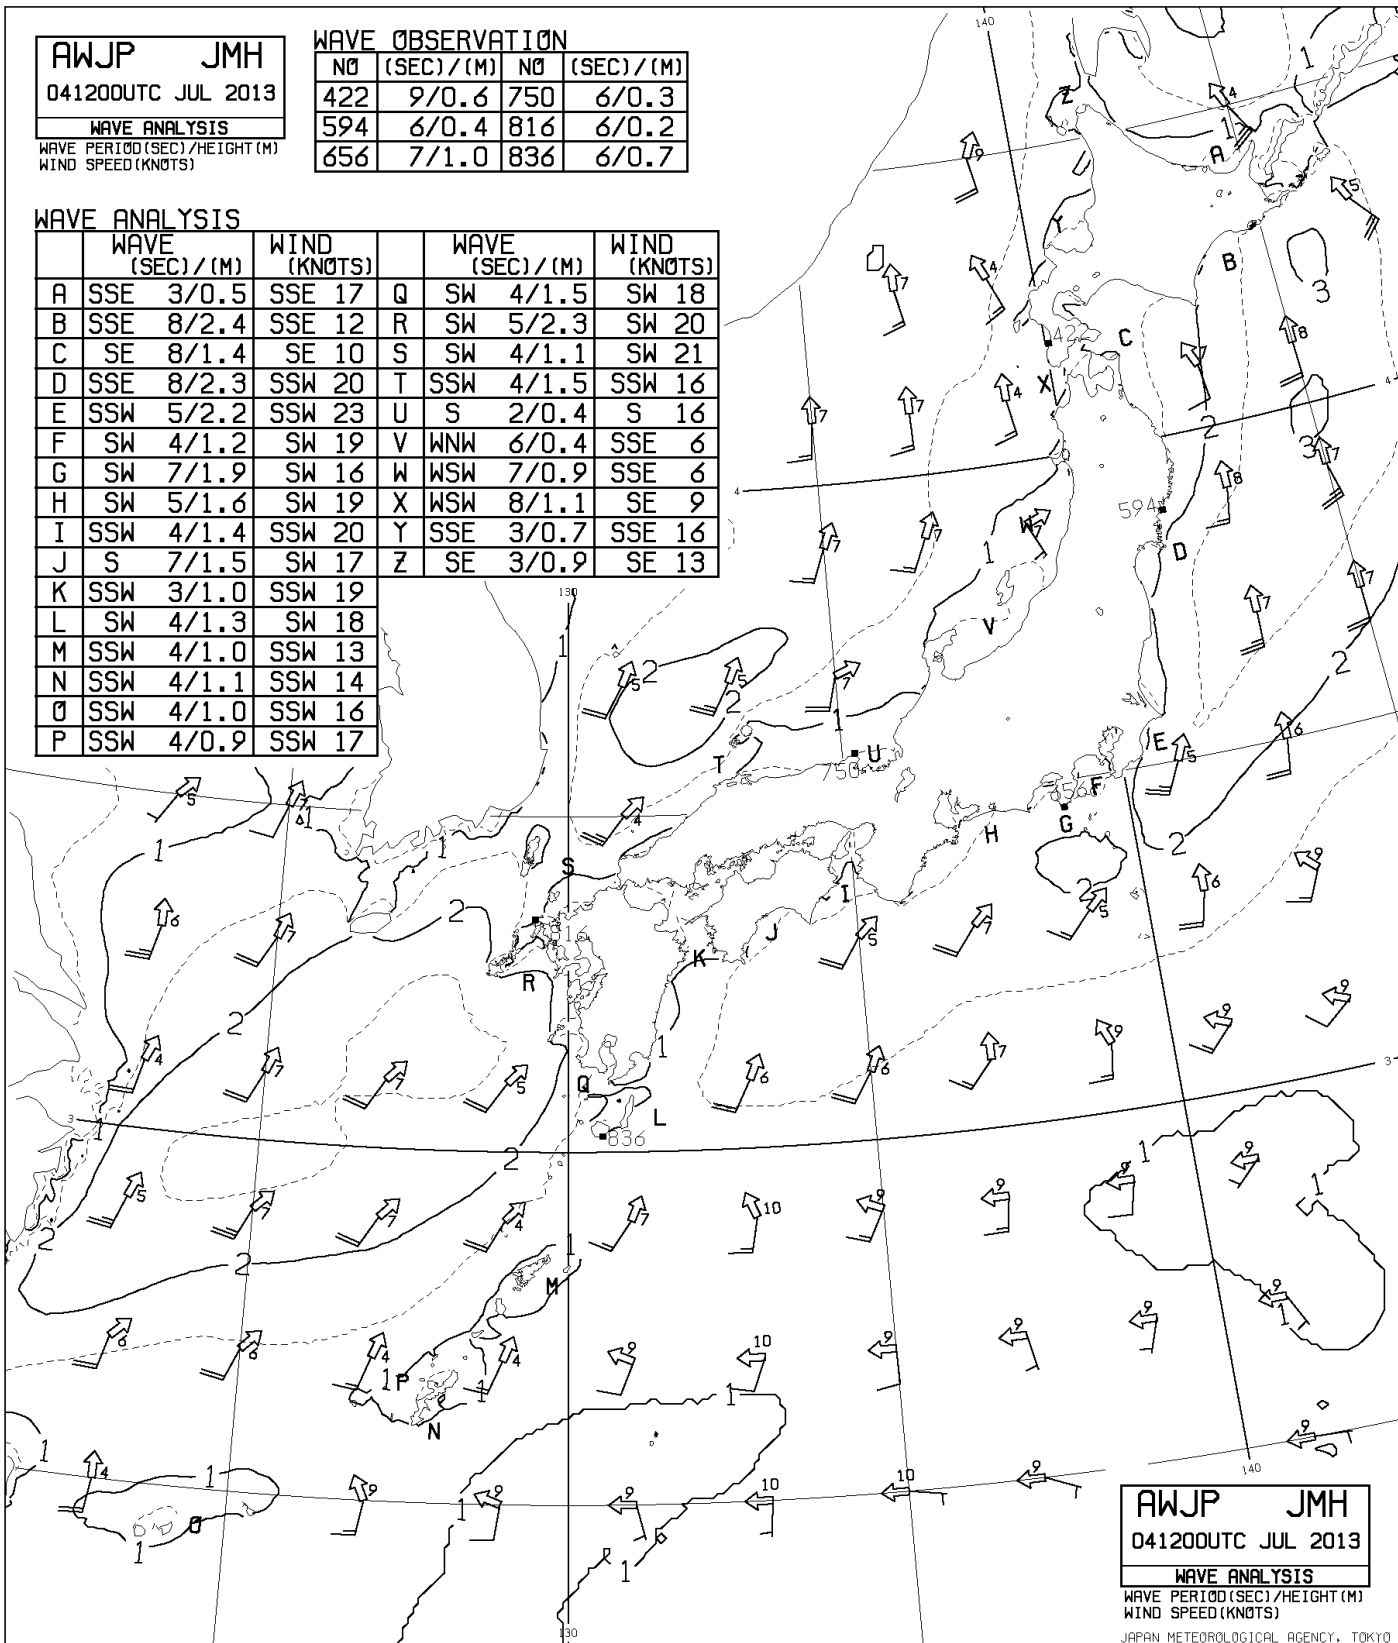 AWJP JMH
041200UTC JUL 2013
WAVE ANALYSIS
WAVE PERIOD(SEC)/HEIGHT(M)
WIND SPEED(KNOTS)
WAVE OBSERVATION
NO (SEC)/(M) NO (SEC)/(M)
422 9/0.6 750 6/0.3
594 6/0.4 816 6/0.2
656 7/1.0 836 6/0.7
WAVE ANALYSIS
WAVE (SEC)/(M) WIND (KNOTS) WAVE (SEC)/(M) WIND (KNOTS)
A SSE 3/0.5 SSE 17 Q SW 4/1.5 SW 18
B SSE 8/2.4 SSE 12 R SW 5/2.3 SW 20
C SE 8/1.4 SE 10 S SW 4/1.1 SW 21
D SSE 8/2.3 SSW 20 T SSW 4/1.5 SSW 16
E SSW 5/2.2 SSW 23 U S 2/0.4 S 16
F SW 4/1.2 SW 19 V WNW 6/0.4 SSE 6
G SW 7/1.9 SW 16 W WSW 7/0.9 SSE 6
H SW 5/1.6 SW 19 X WSW 8/1.1 SE 9
I SSW 4/1.4 SSW 20 Y SSE 3/0.7 SSE 16
J S 7/1.5 SW 17 Z SE 3/0.9 SE 13
K SSW 3/1.0 SSW 19
L SW 4/1.3 SW 18
M SSW 4/1.0 SSW 13
N SSW 4/1.1 SSW 14
O SSW 4/1.0 SSW 16
P SSW 4/0.9 SSW 17
140
1
Z
4
1
A
9
5
Y
B
7
4
3
8
C
X
7
7
4
2
3
7
4
594
8
W
D
7
7
1
7
7
130
V
1
2
5
2
5
2
7
1
T
U
750
E
5
6
2
F
G
H
5
7
1
1
4
S
2
I
5
9
6
2
J
K
R
6
7
5
7
2
1
9
9
7
9
4
7
7
5
6
6
Q
L
836
3
3
1
2
9
9
1
1
5
7
7
4
7
10
9
9
2
2
1
M
9
1
6
6
4
1
P
4
1
N
9
10
9
9
9
1
9
1
4
1
O
1
9
9
1
9
10
10
9
1
140
130
AWJP JMH
041200UTC JUL 2013
WAVE ANALYSIS
WAVE PERIOD(SEC)/HEIGHT(M)
WIND SPEED(KNOTS)
JAPAN METEOROLOGICAL AGENCY, TOKYO